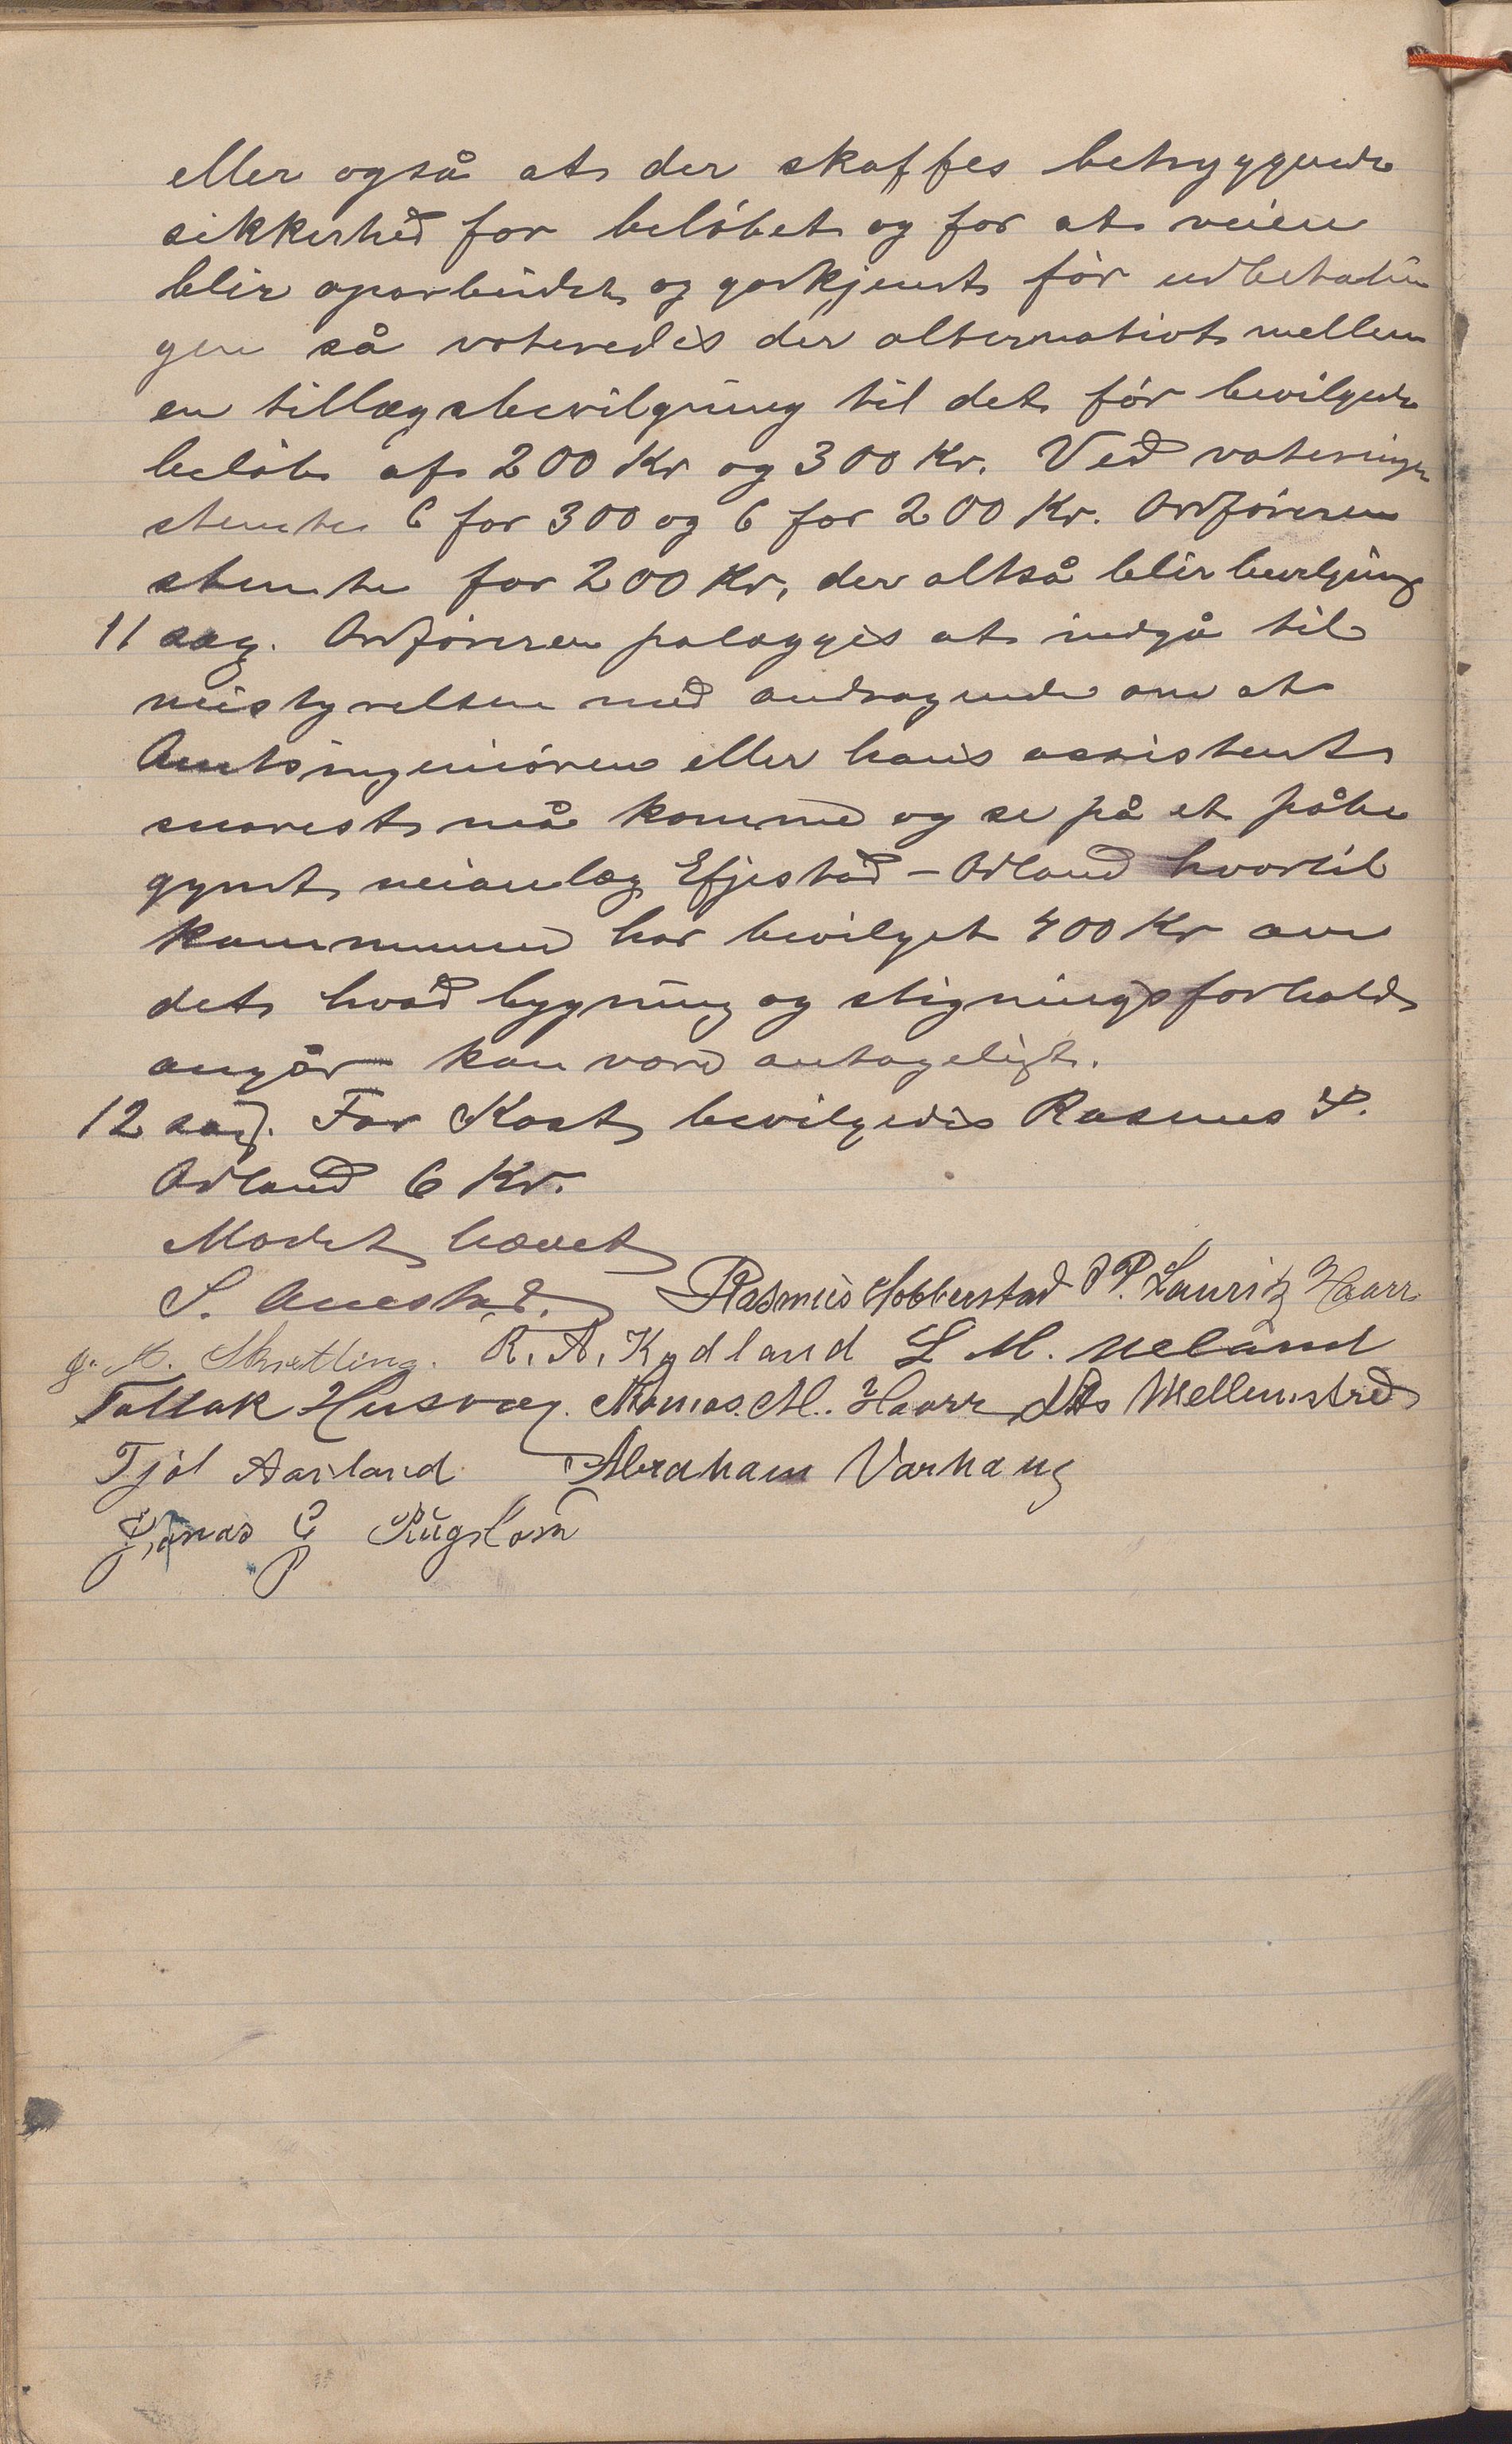 eller også at der skaffes betryggende
sikkerhed for beløbet og for at veien
blir oparbeidet og godkjendt før udbetalin
gen så voteredes der alternativt mellem
en tillægsbevilgning til det før bevilgede
beløb af 200 Kr og 300 Kr. Ved voteringen
stemte 6 for 300 og 6 for 200 Kr. Ordføreren
stemte for 200 Kr, der altså blir bevilgning
11 sag. Ordføreren palægges at indgå til
veistyrelsen med andragende om at
Amtsingeniøren eller hans assistent
snarest må komme og se på et påbe
gyndt veianlæg Efjestad - Odland hvortil
kommunen har bevilget 400 Kr om
det hvad bygning og stigningsforhold
angår kan være antageligt.
12 sag. For Kost bevilgedes Rasmus P.
Odland 6 Kr.
Mødet hævet
S. Anestad. Rasmus Hobberstad P. Lauritz Haarr
M. Skretting. R. A. Kydland L M. Ueland
Tallak Husvæg. Tomas. M. Haarr Mellemstrød
Tjøl Aarland Abraham Varhaug
Jonas G